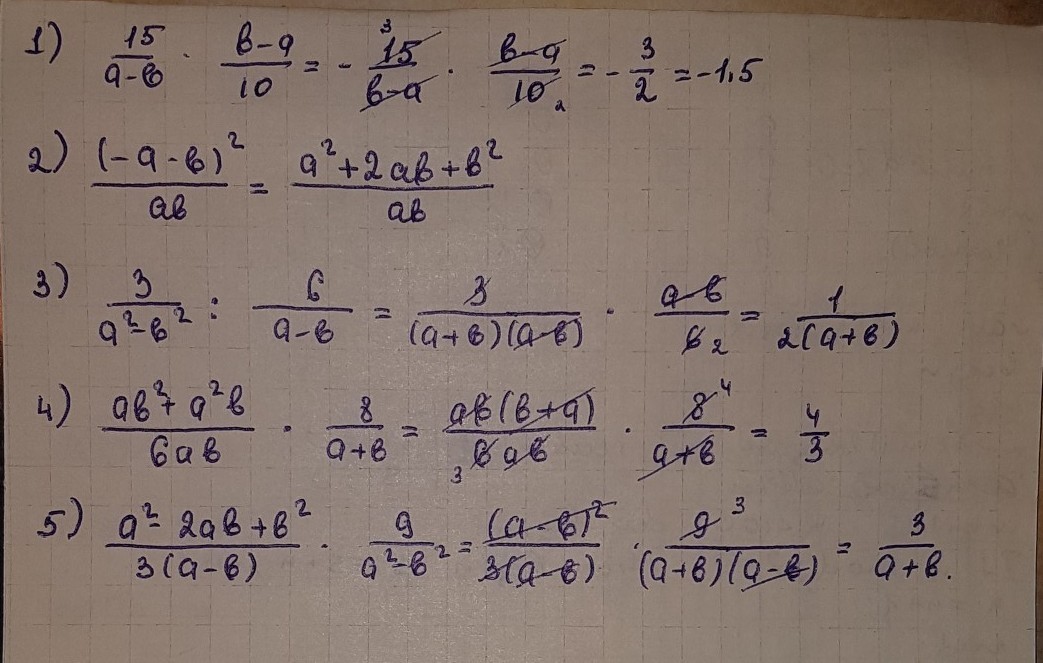 1) 15/(a-b) · (b-a)/10 = - 15/(b-a) · (b-a)/10 = - 3/2 = -1,5
2) (-a-b)²/ab = (a²+2ab+b²)/ab
3) 3/(a²-b²) : 6/(a-b) = 3/((a+b)(a-b)) · (a-b)/6 = 1/(2(a+b))
4) (ab²+a²b)/6ab · 8/(a+b) = ab(b+a)/6ab · 8/(a+b) = 4/3
5) (a²-2ab+b²)/(3(a-b)) · 9/(a²-b²) = (a-b)²/(3(a-b)) · 9/((a+b)(a-b)) = 3/(a+b).